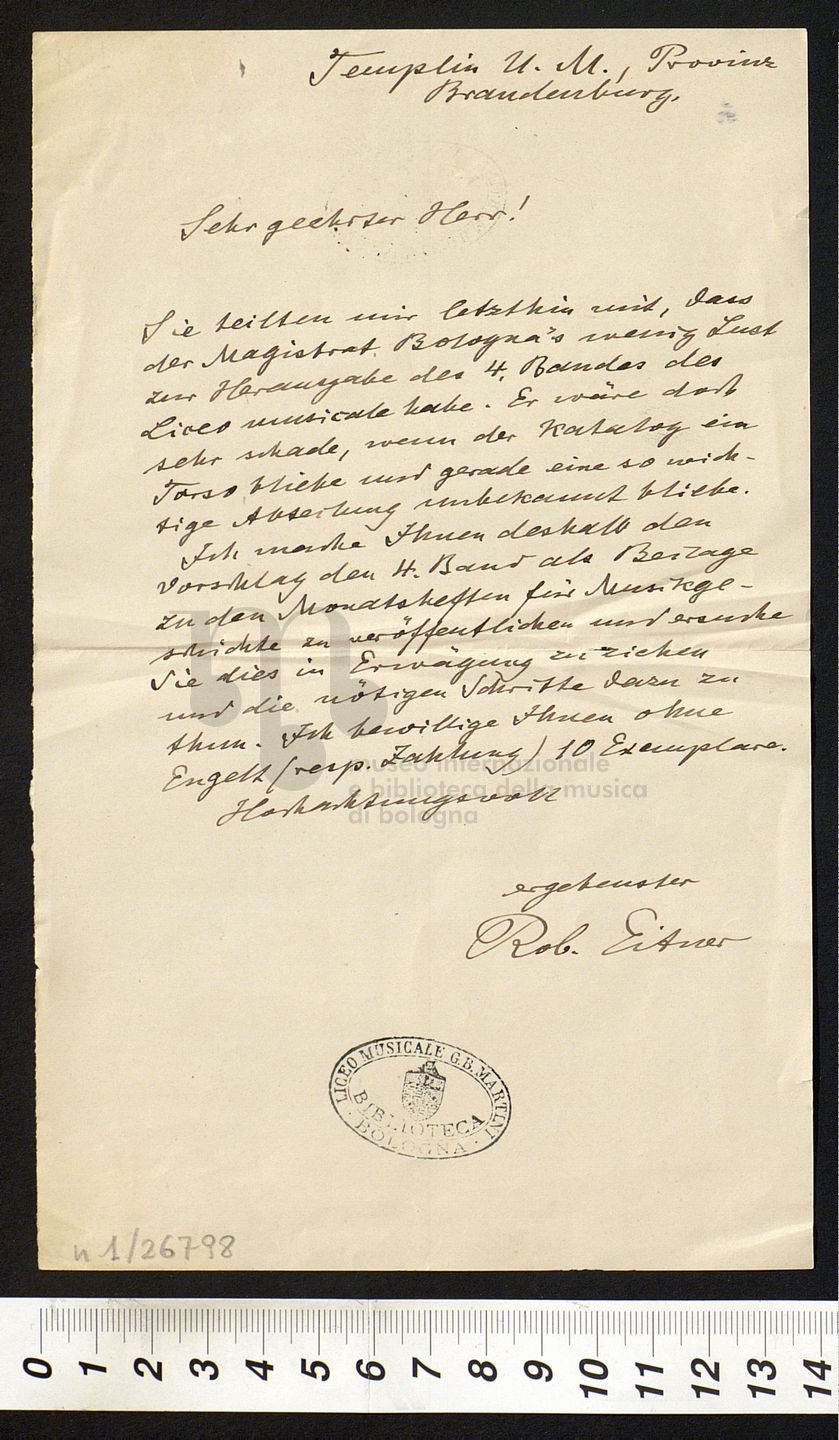 Templin U. M., Provinz
Brandenburg.
Sehr geehrter Herr!
Sie teilten mir letzthin mit, dass
der Magistrat Bologna's wenig Lust
zur Herausgabe des 4. Bandes des
Liceo musicale habe. Er wäre doch
sehr schade, wenn der Katalog ein
Torso bliebe und gerade eine so wich-
tige Abteilung unbekannt bliebe.
Ich mache Ihnen deshalb den
Vorschlag den 4. Band als Beilage
zu den Monatsheften für Musikge-
schichte zu veröffentlichen und ersuche
Sie dies in Erwägung zu ziehen
und die nötigen Schritte dazu zu
thun. Ich bewillige Ihnen ohne
Engelt (resp. Zahlung) 10 Exemplare.
Hochachtungsvoll
ergebenster
Rob. Eitner
museo internazionale
e biblioteca della musica
di bologna
LICEO MUSICALE G.B. MARTINI
BIBLIOTECA
BOLOGNA
n 1/26798
0 1 2 3 4 5 6 7 8 9 10 11 12 13 14